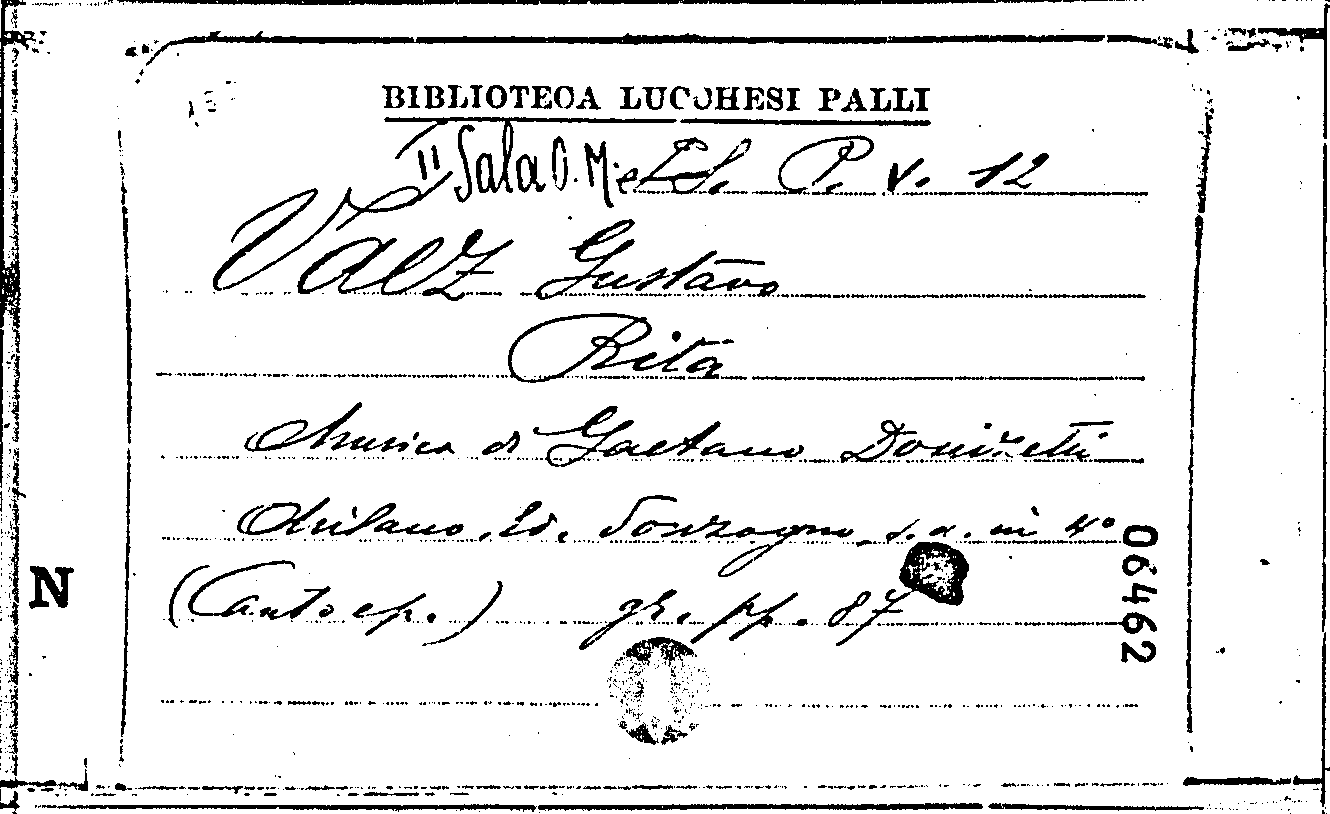 BIBLIOTECA LUCCHESI PALLI
II Sala O. M. P. V. 12
Vaez Gustavo
Rita
Musica di Gaetano Donizetti
Milano. Ed. Sonzogno, s. a. in 4°
(Canto e p.) gr. pp. 87
06462
N